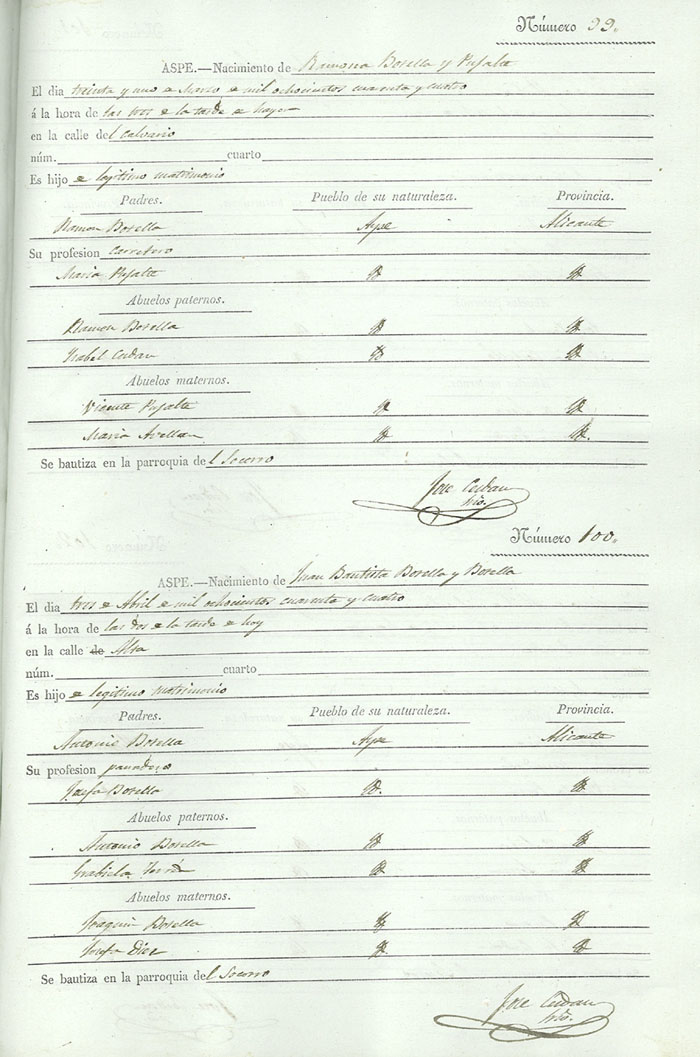 Número 99.
ASPE.—Nacimiento de Ramona Botella y Pujalte
El dia treinta y uno de Marzo de mil ochocientos cuarenta y cuatro
á la hora de las tres de la tarde de hoy
en la calle del Calvario
núm. cuarto
Es hijo de legitimo matrimonio
Padres. Pueblo de su naturaleza. Provincia.
Ramon Botella Aspe Alicante
Su profesion Carretero
Maria Pujalte Id. Id.
Abuelos paternos.
Ramon Botella Id. Id.
Ysabel Cerdan Id. Id.
Abuelos maternos.
Vicente Pujalte Id. Id.
Maria Avellan Id. Id.
Se bautiza en la parroquia del Socorro
Jose Cerdan
Srio.
Número 100.
ASPE.—Nacimiento de Juan Bautista Botella y Botella
El dia tres de Abril de mil ochocientos cuarenta y cuatro
á la hora de las dos de la tarde de hoy
en la calle de Alta
núm. cuarto
Es hijo de legitimo matrimonio
Padres. Pueblo de su naturaleza. Provincia.
Antonio Botella Aspe Alicante
Su profesion panadero
Josefa Botella Id. Id.
Abuelos paternos.
Antonio Botella Id. Id.
Grabiela Id. Id.
Abuelos maternos.
Joaquin Botella Id. Id.
Josefa Diez Id. Id.
Se bautiza en la parroquia del Socorro
Jose Cerdan
Srio.